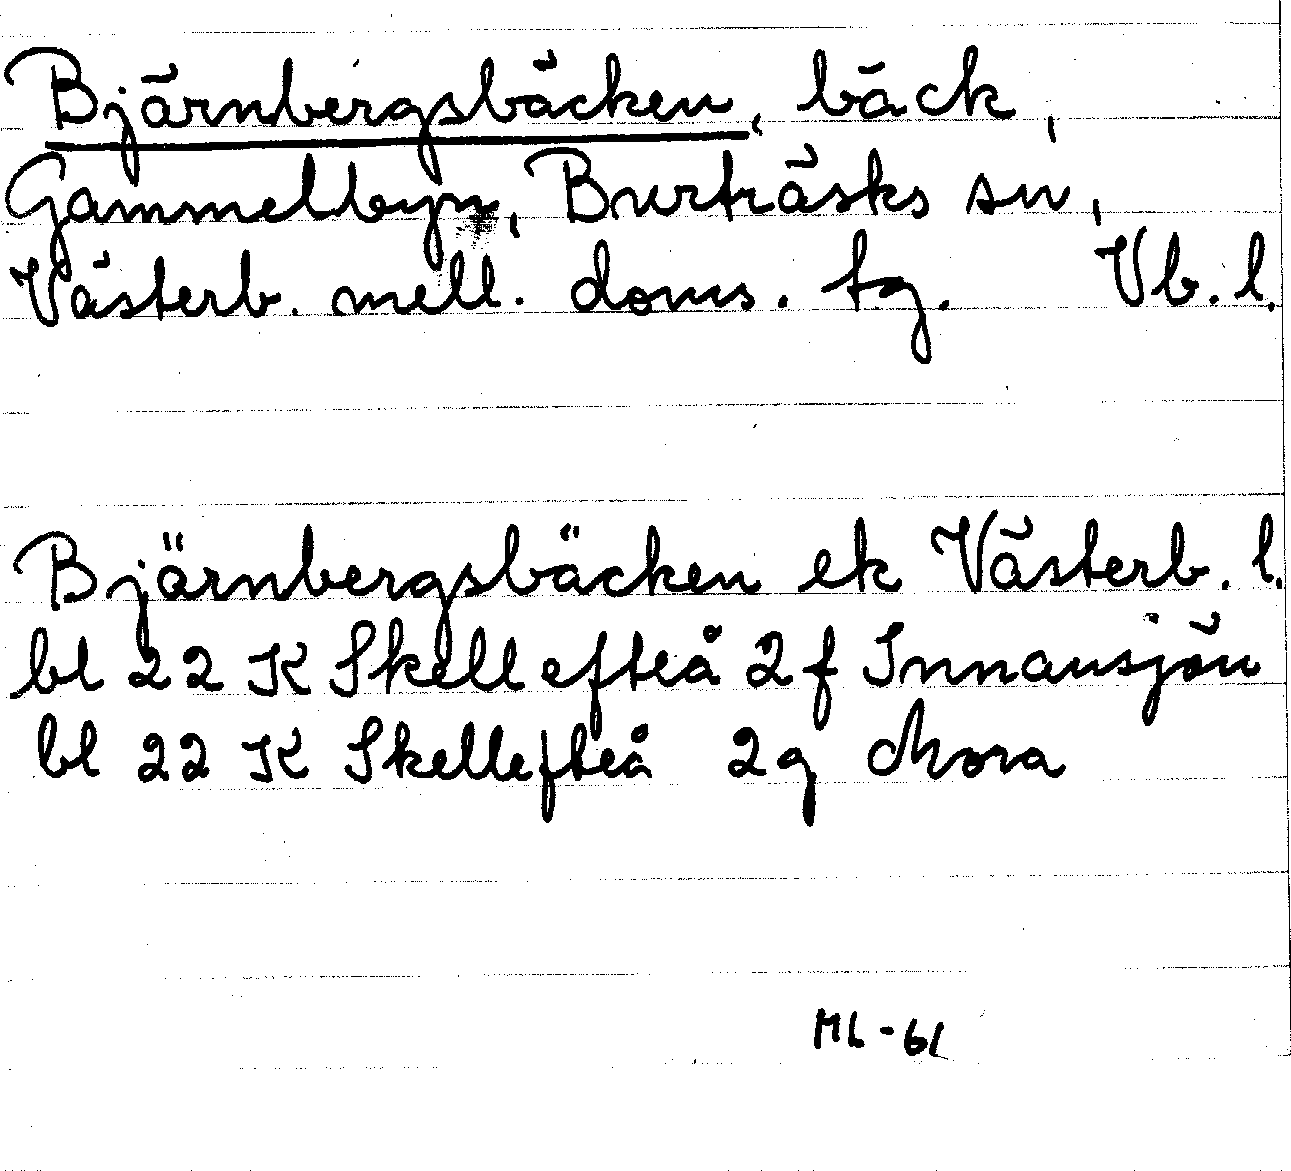 Bjärnbergsbäcken, bäck,
Gammelbyn, Burträsks sn,
Västerb. mell. doms. tg. Vb. l.
Bjärnbergsbäcken ek Västerb. l.
bl 22 K Skellefteå 2f Innansjön
bl 22 K Skellefteå 2g Mora
ML-61